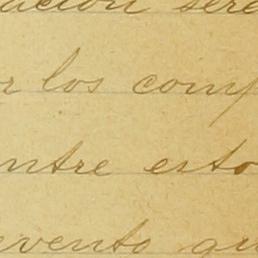 ación sere
r los comp
ntre esto
evento qu